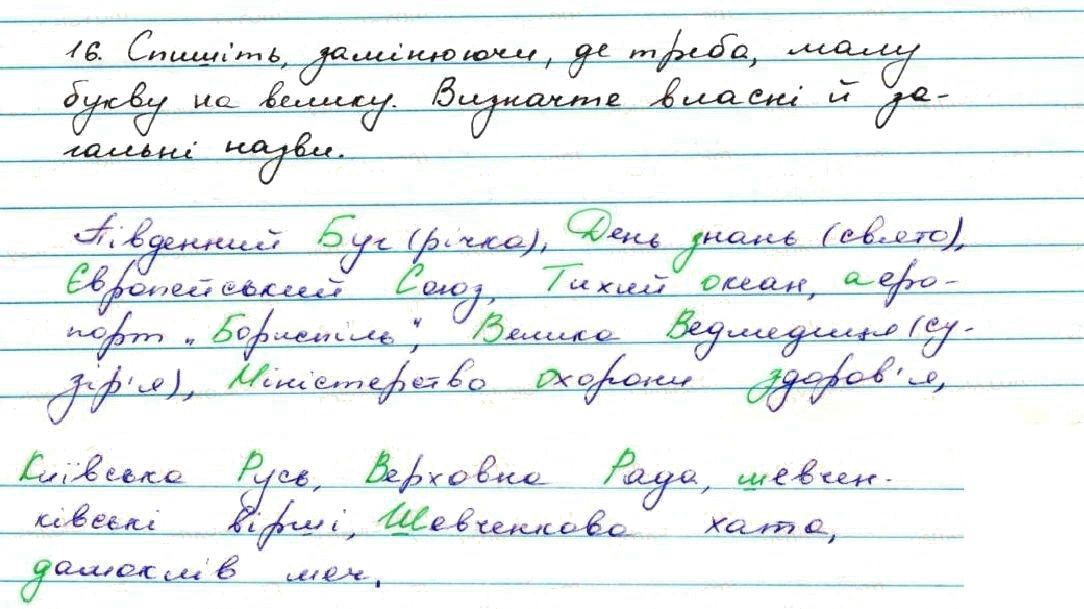 16. Спишіть, замінюючи, де треба, малу
букву на велику. Визначте власні й за-
гальні назви.
Південний Буг (річка), День знань (свято),
Європейський Союз, Тихий океан, аеро-
порт „Бориспіль", Велика Ведмедиця (су-
зір'я), Міністерство охорони здоров'я,
Київська Русь, Верховна Рада, шевчен-
ківські вірші, Шевченкова хата,
дамоклів меч.